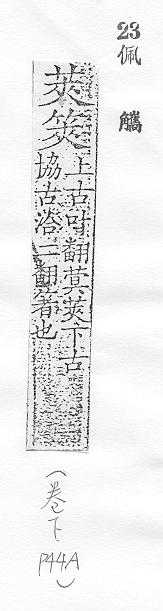 23
佩觿
莢筴上古叶翻蓂莢下古
協古洽二翻著也
(卷下
P44A)